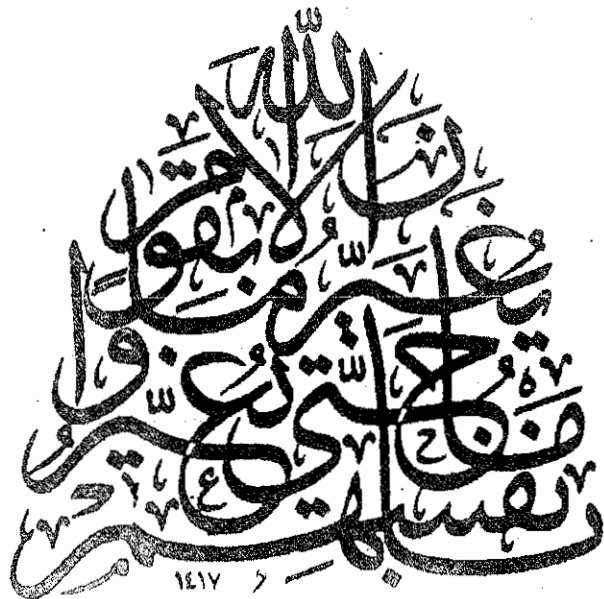 إن الله لا يغير ما بقوم
حتى يغيروا ما
بأنفسهم
١٤١٧